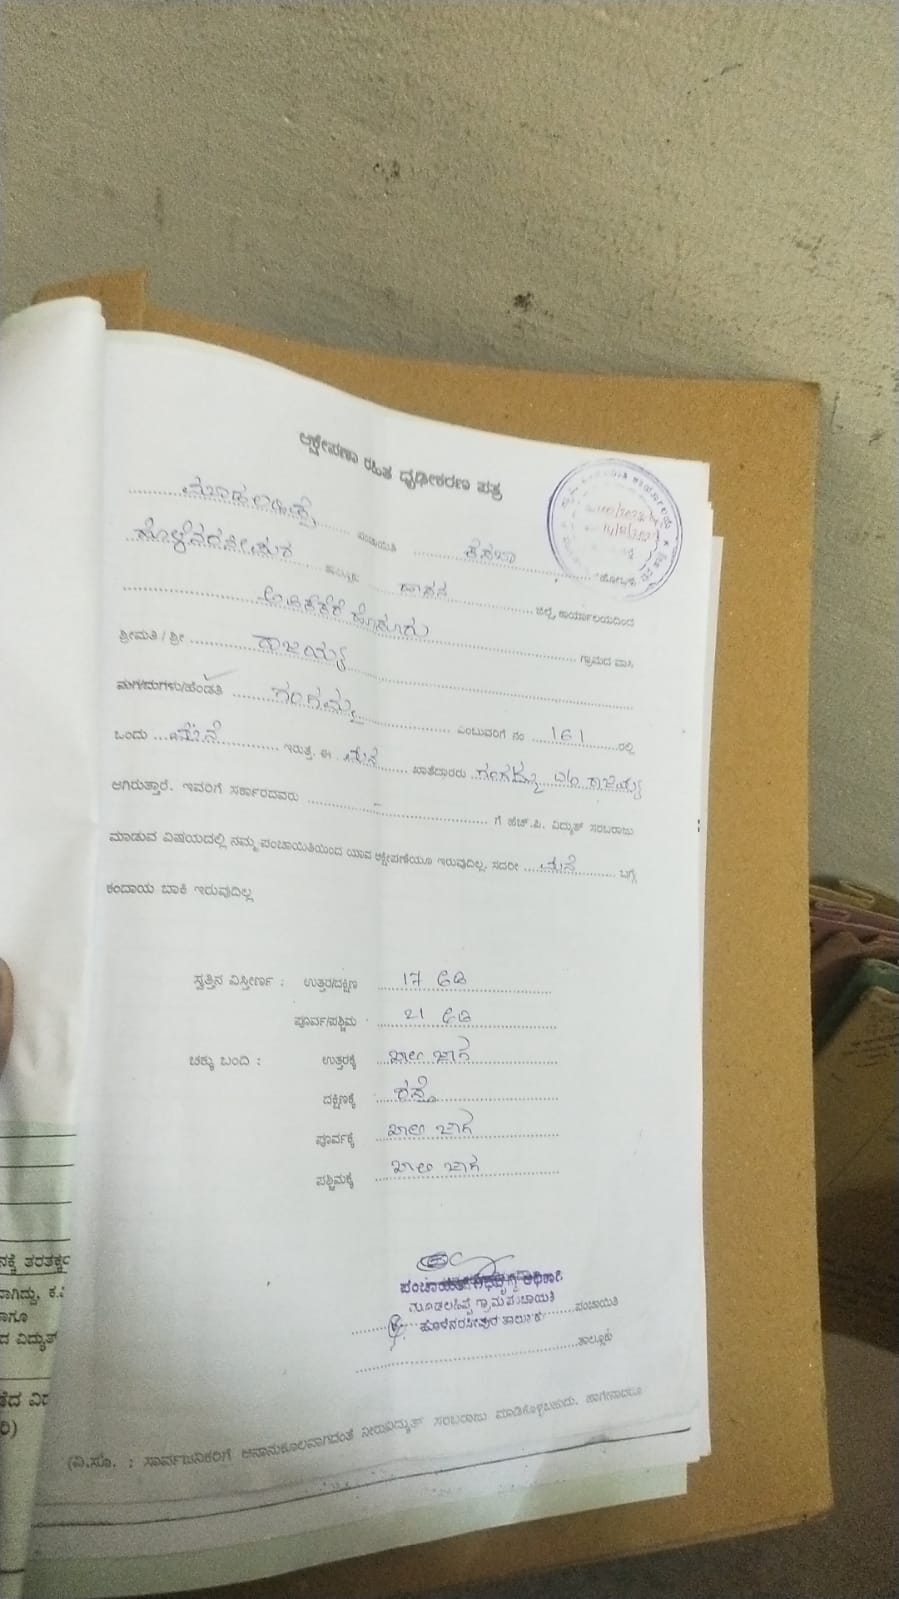 ಆಕ್ಷೇಪಣಾ ರಹಿತ ದೃಢೀಕರಣ ಪತ್ರ
ಮೂಡಲಹಿಪ್ಪೆ ಪಂಚಾಯಿತಿ ಕಸಬಾ ಹೋಬಳಿ
ಹೊಳೆನರಸೀಪುರ ತಾಲ್ಲೂಕು ಹಾಸನ ಜಿಲ್ಲೆ ಕಾರ್ಯಾಲಯದಿಂದ
ಹೊಸೂರು ಗ್ರಾಮದ ವಾಸಿ
ಶ್ರೀಮತಿ / ಶ್ರೀ ರಾಜಯ್ಯ
ಮಗ/ಮಗಳು/ಹೆಂಡತಿ ಗಂಗಮ್ಮ ಎಂಬುವರಿಗೆ ನಂ 161 ರಲ್ಲಿ
ಒಂದು ಮನೆ ಇರುತ್ತೆ. ಈ ಮನೆ ಖಾತೆದಾರರು ಗಂಗಮ್ಮ ರಾಜಯ್ಯ
ಆಗಿರುತ್ತಾರೆ. ಇವರಿಗೆ ಸರ್ಕಾರದವರು - ಗೆ ಹೆಚ್.ಪಿ. ವಿದ್ಯುತ್ ಸರಬರಾಜು
ಮಾಡುವ ವಿಷಯದಲ್ಲಿ ನಮ್ಮ ಪಂಚಾಯಿತಿಯಿಂದ ಯಾವ ಆಕ್ಷೇಪಣೆಯೂ ಇರುವುದಿಲ್ಲ. ಸದರೀ ಮನೆ ಬಗ್ಗೆ
ಕಂದಾಯ ಬಾಕಿ ಇರುವುದಿಲ್ಲ
ಸ್ವತ್ತಿನ ವಿಸ್ತೀರ್ಣ : ಉತ್ತರ/ದಕ್ಷಿಣ 17 ಅಡಿ
ಪೂರ್ವ/ಪಶ್ಚಿಮ 21 ಅಡಿ
ಚಕ್ಕು ಬಂದಿ : ಉತ್ತರಕ್ಕೆ ಖಾಲಿ ಜಾಗ
ದಕ್ಷಿಣಕ್ಕೆ ರಸ್ತೆ
ಪೂರ್ವಕ್ಕೆ ಖಾಲಿ ಜಾಗ
ಪಶ್ಚಿಮಕ್ಕೆ ಖಾಲಿ ಜಾಗ
ಪಂಚಾಯತಿ ಅಭಿವೃದ್ಧಿ ಅಧಿಕಾರಿ
ಮೂಡಲಹಿಪ್ಪೆ ಗ್ರಾಮ ಪಂಚಾಯತಿ ಪಂಚಾಯಿತಿ
ಹೊಳೆನರಸೀಪುರ ತಾಲೂಕು
ತಾಲ್ಲೂಕು
(ವಿ.ಸೂ. : ಸಾರ್ವಜನಿಕರಿಗೆ ಅನಾನುಕೂಲವಾಗದಂತೆ ನೀರು/ವಿದ್ಯುತ್ ಸರಬರಾಜು ಮಾಡಿಕೊಳ್ಳಬಹುದು.